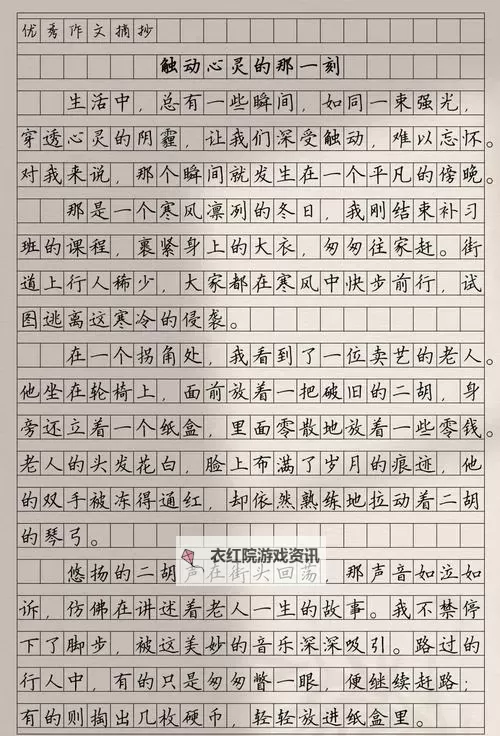 优秀作文摘抄
触动心灵的那一刻
生活中，总有一些瞬间，如同一束强光，
穿透心灵的阴霾，让我们深受触动，难以忘怀。
对我来说，那个瞬间就发生在一个平凡的傍晚。
那是一个寒风凛冽的冬日，我刚结束补习
班的课程，裹紧身上的大衣，匆匆往家赶。街
道上行人稀少，大家都在寒风中快步前行，试
图逃离这寒冷的侵袭。
在一个拐角处，我看到了一位卖艺的老人。
他坐在轮椅上，面前放着一把破旧的二胡，身
旁还立着一个纸盒，里面零散地放着一些零钱。
老人的头发花白，脸上布满了岁月的痕迹，他
的双手被冻得通红，却依然熟练地拉动着二胡
的琴弓。
衣红院游戏资讯
悠扬的二胡声在街头回荡，那声音如泣如
诉，仿佛在讲述着老人一生的故事。我不禁停
下了脚步，被这美妙的音乐深深吸引。路过的
行人中，有的只是匆匆瞥一眼，便继续赶路；
有的则掏出几枚硬币，轻轻放进纸盒里。